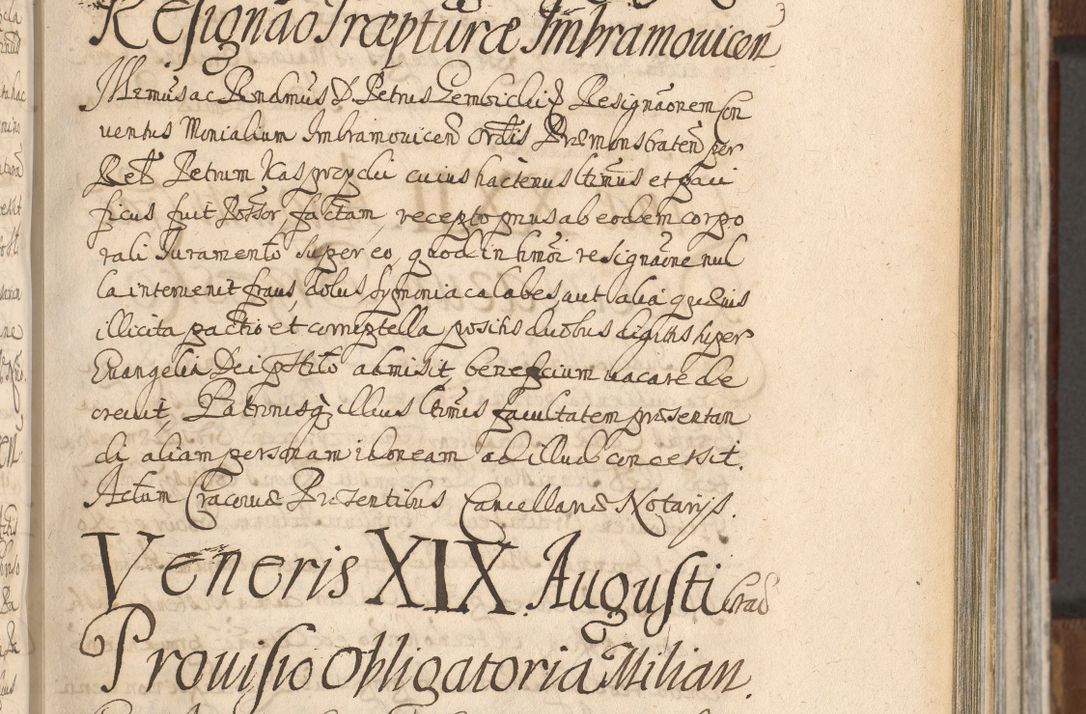 Resignão Præpturæ Imbramouicen̄
Illr̃mus ac Rndmus D. Petrus Gembicki Resignãonem Con
uentus Monialium Imbramouicen̄ Ordĩs Præmonstraten̄ per
Petrum Kasprzycki cuius hactenus ltĩmus et paci
ficus fuit Possor, factam, recepto prius ab eodem corpo
rali Iuramento super eo, quod in hmõi resignãone nul
la interuenit fraus, dolus, symoniaca labes, aut alia quæuis
illicita pactio et corruptella positis duobus digitis super
Euangelia Dei admisit, beneficium uacare de
creuit, Patronisq̃ illius ltĩmis facultatem præsentan
di aliam personam idoneam ad illud concessit.
Actum Cracouiæ Præsentibus Cancellariæ Notarijs.
Veneris XIX Augusti
Prouisio Obligatoria Milian.